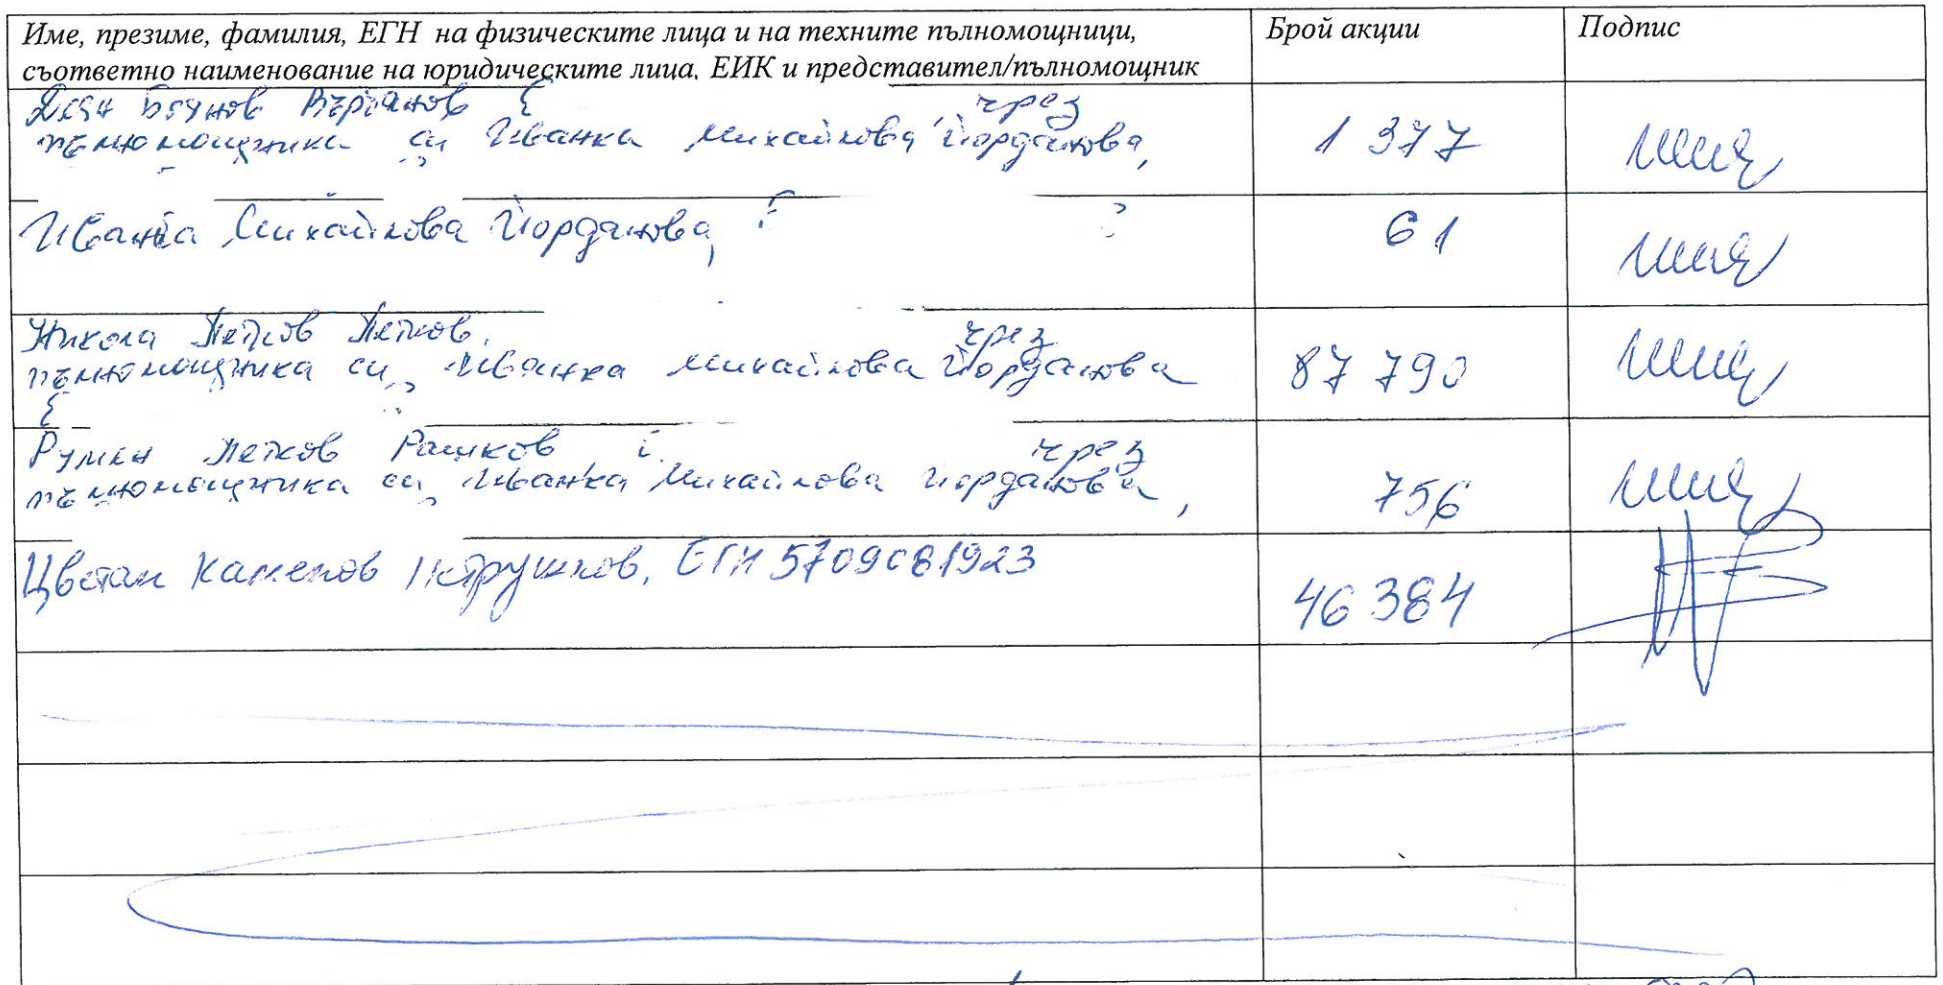 Име, презиме, фамилия, ЕГН на физическите лица и на техните пълномощници, съответно наименование на юридическите лица, ЕИК и представител/пълномощник
Брой акции
Подпис
чрез
пълномощника си Иванка Михайлова Йорданова,
1 377
Иванка Михайлова Йорданова,
61
Никола Петков Петков, чрез
пълномощника си Иванка Михайлова Йорданова
87 790
Румен Петков Рашков чрез
пълномощника си Иванка Михайлова Йорданова,
756
Цветан Каменов Петрушков, ЕГН 5709081923
46 384